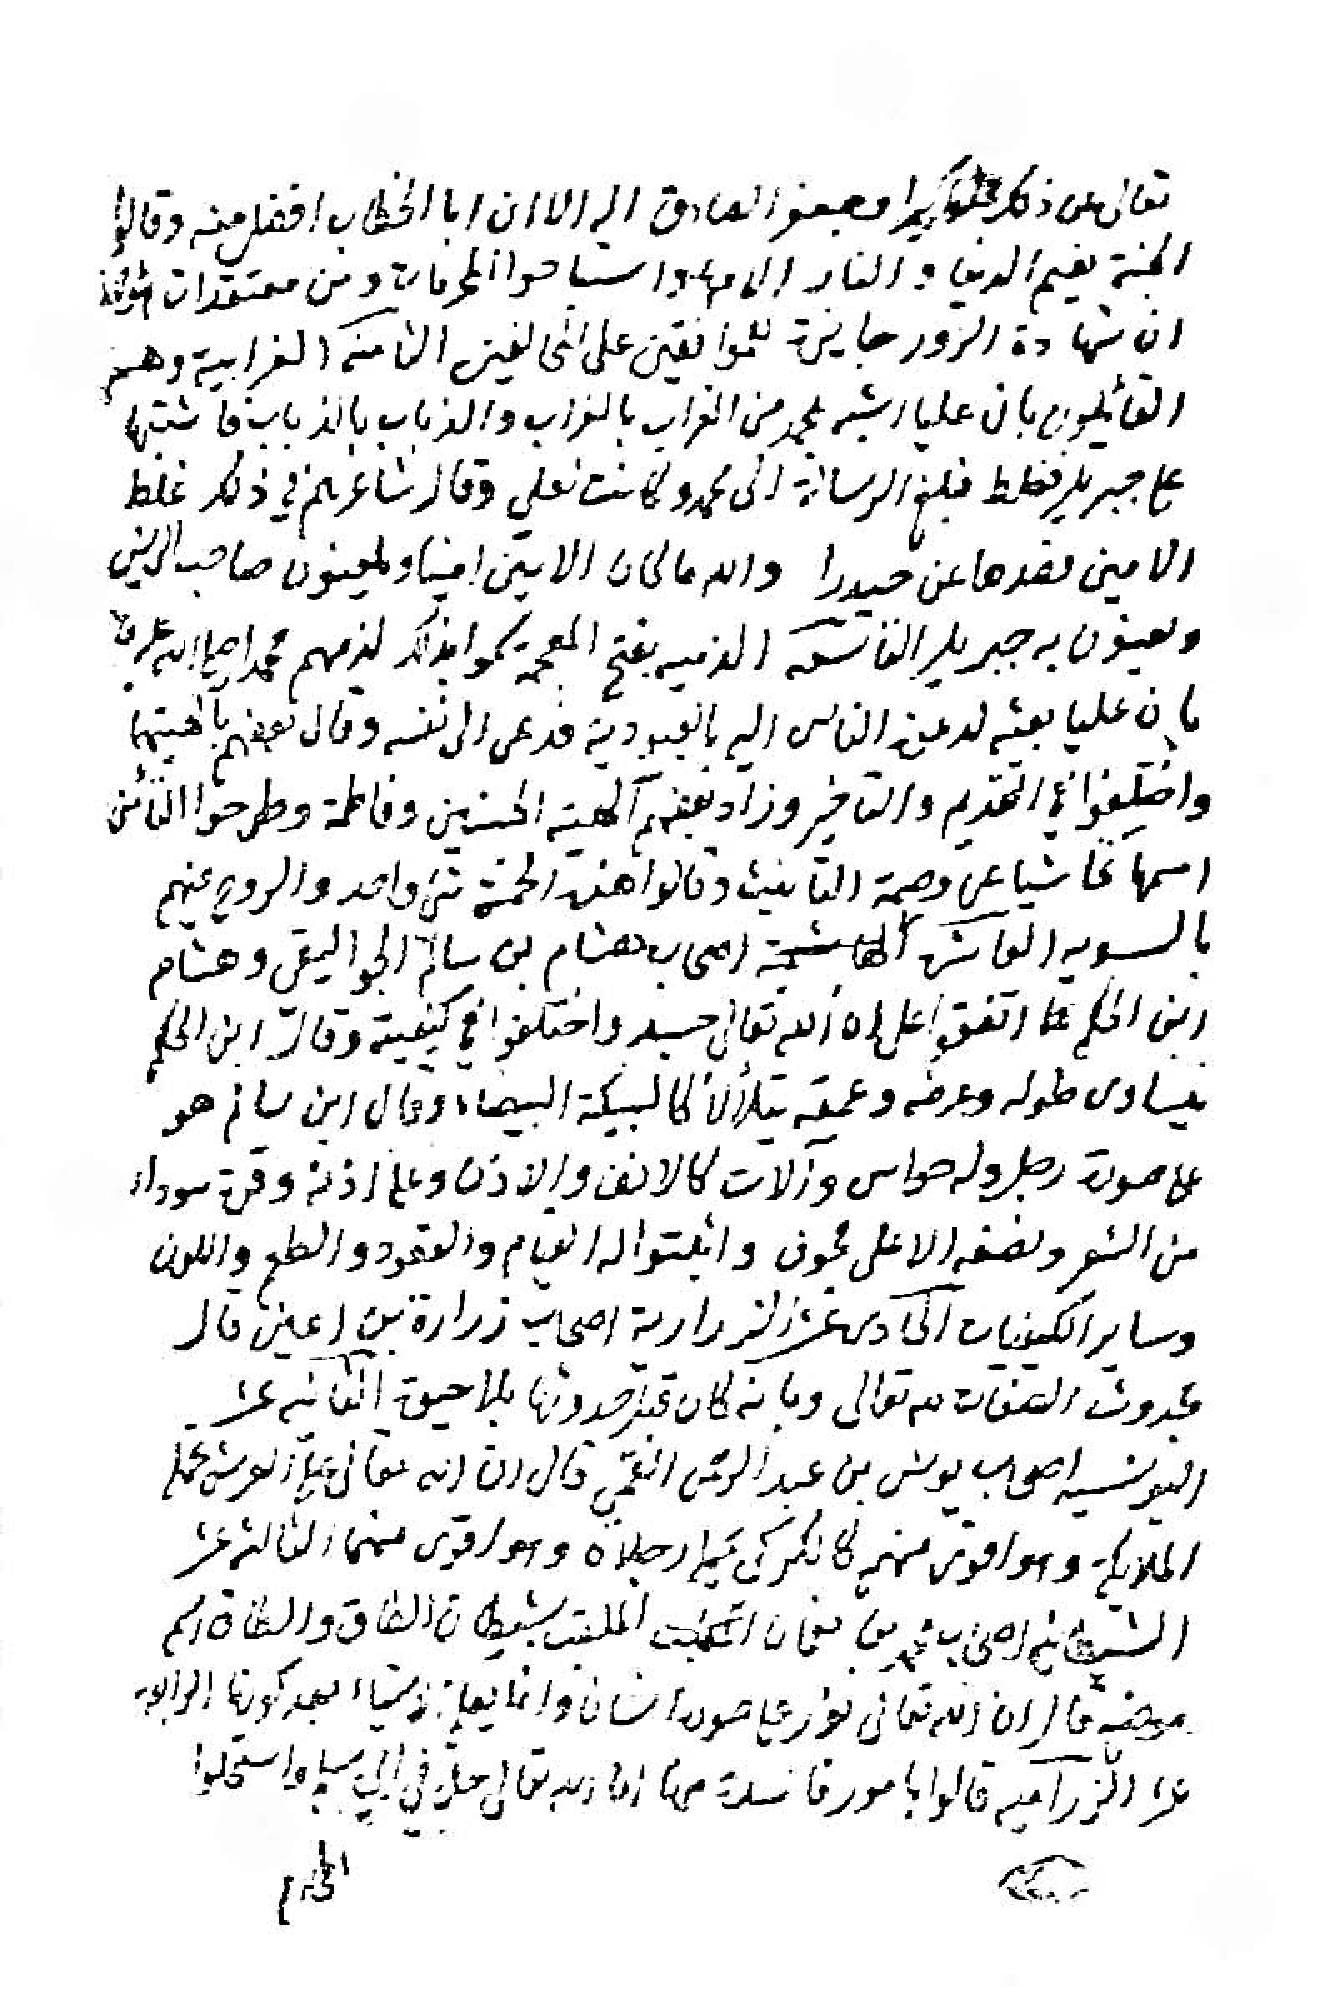 تعالى عن ذلك علوا كبيرا وجعفر الصادق اله الا ان ابا الخطاب افضل منه وقالوا
الجنة نعيم الدنيا والنار الامها واستباحوا المحرمات ومن معتقدات هؤلاء
ان شهادة الزور جايزة للموافقين على المخالفين الثامنة الغرابية وهم
القائلون بان عليا اشبه بمحمد من الغراب بالغراب والذباب بالذباب فاشتبها
على جبريل فغلط فبلغ الرسالة الى محمد وكانت لعلي وقال شاعرهم في ذلك غلط
الامين فصدها عن حيدرا والله ما كان الامين امينا ويلعنون صاحب الريش
ويعنون به جبريل التاسعة الذميه بفتح المعجمة سموا بذلك لذمهم محمدا صلى الله عليه
بان عليا بعثه ليدعو الناس اليه بالعبودية فدعى الى نفسه وقال بعضهم بالهيتهما
واختلفوا في التقديم والتاخير وزاد بعضهم آلهية الحسنين وفاطمة وطرحوا التأمن
اسمها تحاشيا عن وصمة التانيث وقالوا هذه الخمسة شئ واحد والروح فيهم
بالسويه العاشرة الهاشمية اصحاب هشام بن سالم الجواليقي وهشام
ابن الحكم اتفقوا على ان الله تعالى جسد واختلفوا في كيفية وقال ابن الحكم
يتساوى طوله وعرضه وعمقه يتلألأ كالسبيكة البيضاء وقال ابن سالم هو
على صورة رجل وله حواس وآلات كالانف والاذن وعلى اذنه وفرة سوداء
من الشعر ونصفه الاعلى مجوف واثبتوا له القيام والقعود والطعم واللون
وساير الكيفيات الحادى عشر الزرارية اصحاب زرارة بن اعين قال
بحدوث الصفات لله تعالى وبانه كان قبل حدوثها بلا حيوة الثانيه عشر
اليونسيه اصحاب يونس بن عبد الرحمن القمي قال ان الله تعالى على العرش تحمله
الملايكة وهو اقوى منهم كالكركي تحمله رجلاه وهو اقوى منهما الثالثه عشر
الشيطانية اصحاب محمد بن نعمان الملقب بشيطان الطاق والطاق اسم
موضع قال ان الله تعالى نور على صورة انسان وانما يعلم الاشياء بعد كونها الرابعه
عشر الزراميه قالوا بامور فاسدة منها ان الله تعالى حل في ابي مسلم واستحلوا
المحارم